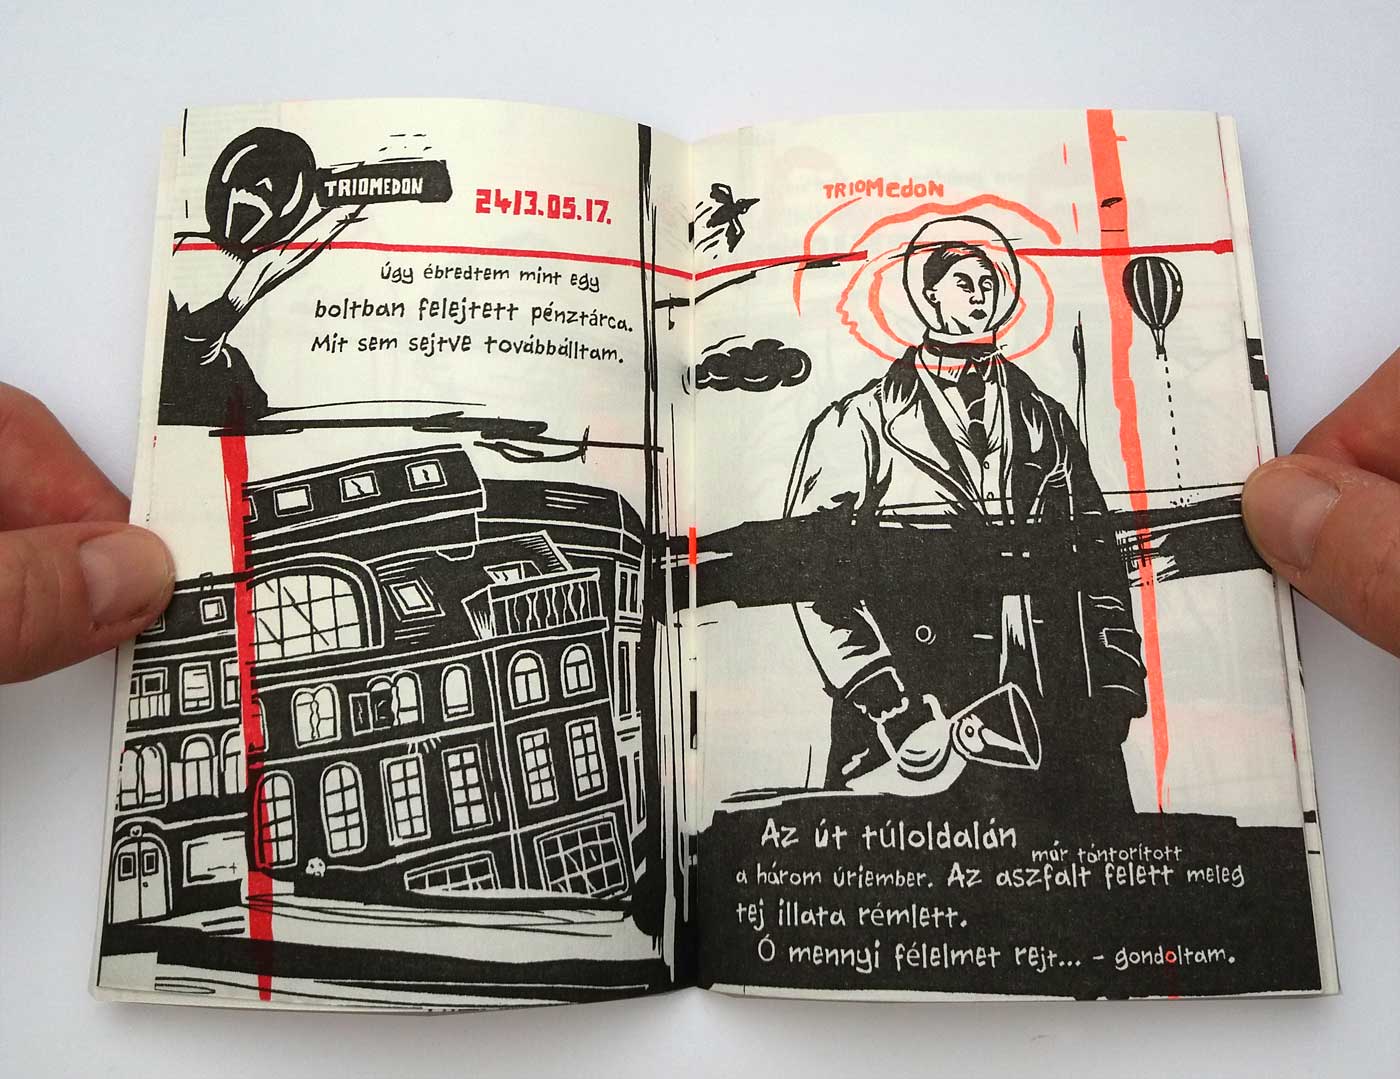 TRIOMEDON
2413.05.17.
Úgy ébredtem mint egy
boltban felejtett pénztárca.
Mit sem sejtve továbbálltam.
TRIOMedoN
Az út túloldalán
már tántorított
a három úriember. Az aszfalt felett meleg
tej illata rémlett.
Ó mennyi félelmet rejt... - gondoltam.